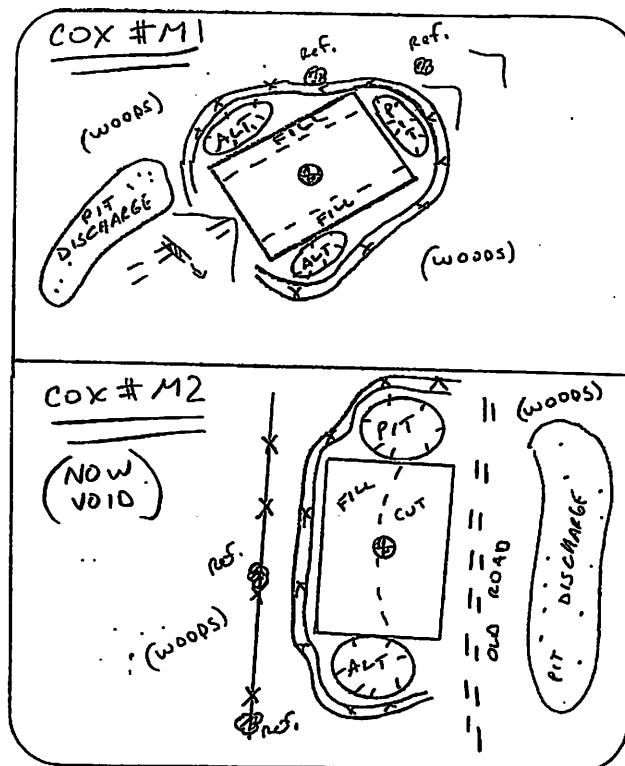 COX #M1
Ref.
Ref.
(WOODS)
ALT.
FILL
PIT
PIT
DISCHARGE
FILL
ALT
(WOODS)
COX #M2
(NOW
VOID)
PIT
(WOODS)
FILL
CUT
Ref.
OLD ROAD
PIT DISCHARGE
(WOODS)
ALT
Ref.